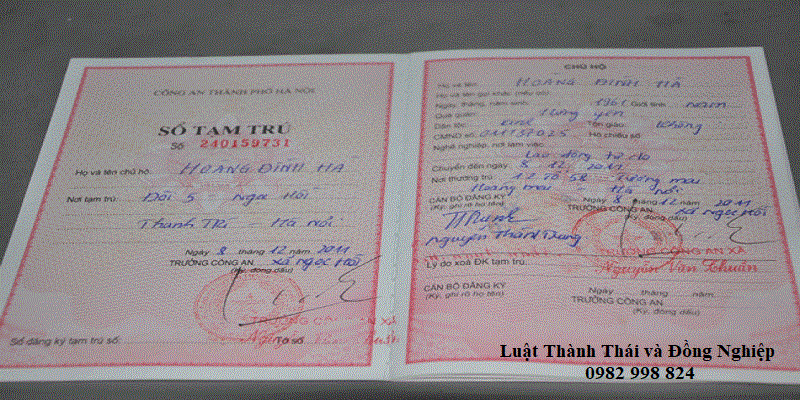 CÔNG AN THÀNH PHỐ HÀ NỘI
SỔ TẠM TRÚ
Số: 240159731
Họ và tên chủ hộ: HOÀNG ĐÌNH HÀ
Nơi tạm trú: Đội 5 Ngọc Hồi
Thanh Trì - Hà Nội
Ngày 8 tháng 12 năm 2011
TRƯỞNG CÔNG AN xã Ngọc Hồi
(Ký, đóng dấu)
Sổ đăng ký tạm trú số:
CHỦ HỘ
Họ và tên: HOÀNG ĐÌNH HÀ
Họ và tên gọi khác (nếu có):
Ngày, tháng, năm sinh: 1961 Giới tính: nam
Quê quán: Hưng Yên
Dân tộc: Kinh Tôn giáo: Không
CMND số: 011137025 Hộ chiếu số:
Nghề nghiệp, nơi làm việc:
Lao động tự do
Chuyển đến ngày: 8 12 2011
Nơi thường trú: Tương mai
Hoàng mai - Hà Nội
8 tháng 12 năm 2011
CÁN BỘ ĐĂNG KÝ TRƯỞNG CÔNG AN xã Ngọc Hồi
(Ký, ghi rõ họ tên) (Ký, đóng dấu)
Nguyễn Thành Dung
TRƯỞNG CÔNG AN XÃ
Nguyễn Văn Thuần
Lý do xoá ĐK tạm trú:
Ngày tháng năm
CÁN BỘ ĐĂNG KÝ TRƯỞNG CÔNG AN
(Ký, ghi rõ họ tên) (Ký, đóng dấu)
Luật Thành Thái và Đồng Nghiệp
0982 998 824